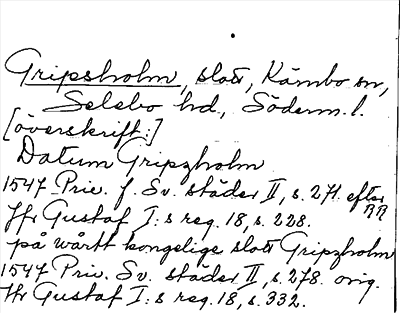 Gripsholm, slott, Kärnbo sn,
Selebo hd, Söderm. l.
[överskrift:]
Datum Gripzholm
1547 Priv. f. Sv. städer II, s. 271. efter RR
Jfr Gustaf I:s reg. 18, s. 228.
på wårtt kongelige slott Gripzholm
1547 Priv. Sv. städer II, s. 278. orig.
Jfr Gustaf I:s reg. 18, s. 332.